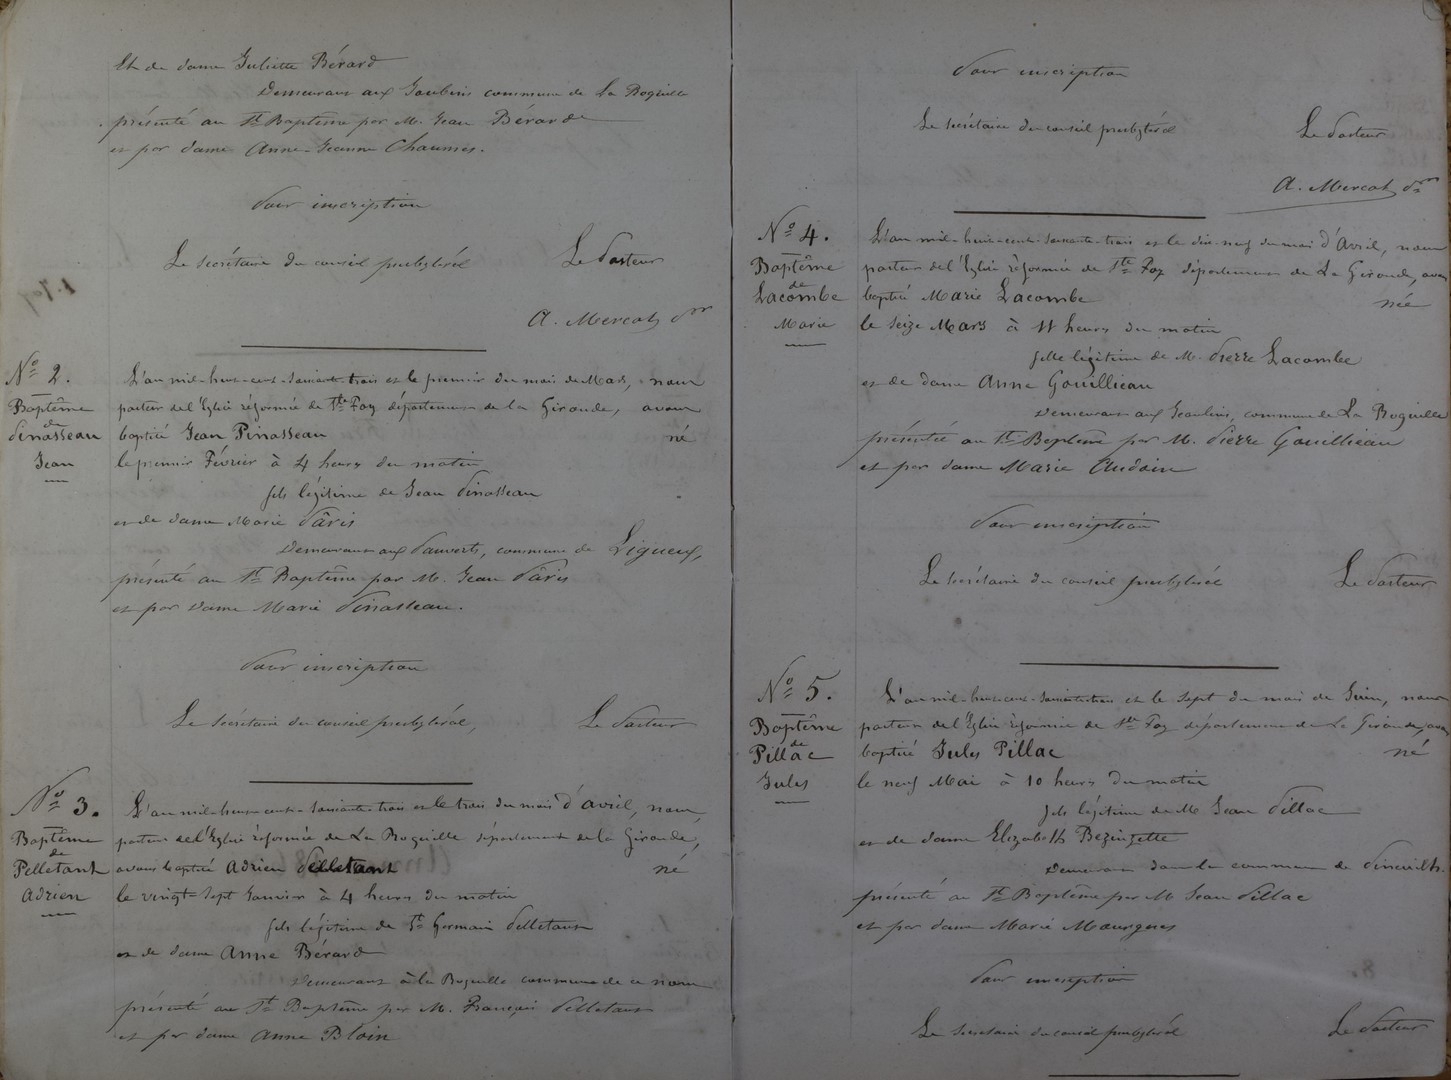 Et de dame Juliette Bérard
Demeurant aux Jaubins commune de la Roquille
présenté au St Baptême par M. Jean Bérard
et par dame Anne-Jeanne Chaumes.
Pour inscription
Le secrétaire du conseil presbytéral
Le Pasteur
A. Mercat
No 2.
Baptême
de
Pinasseau
Jean
L'an mil-huit-cent-soixante-trois et le premier du mois de Mars, nous
pasteur de l'Eglise réformée de Ste Foy département de la Gironde, avons
baptisé Jean Pinasseau né
le premier Février à 4 heures du matin
fils légitime de Jean Pinasseau
et de dame Marie Pâris
Demeurant aux Pauverts, commune de Ligueux,
présenté au St Baptême par M. Jean Pâris
et par Dame Marie Pinasseau.
Pour inscription
Le secrétaire du conseil presbytéral,
Le Pasteur
No 3.
Baptême
de
Pelletant
Adrien
L'an mil-huit-cent-soixante-trois et le trois du mois d'avril, nous,
pasteur de l'Eglise réformée de La Roquille département de la Gironde,
avons baptisé Adrien Pelletant né
le vingt-sept Janvier à 4 heures du matin
fils légitime de St Germain Pelletant
et de dame Anne Bérard
Demeurant à la Roquille commune de ce nom
présenté au St Baptême par M. François Pelletant
et par dame Anne Bloin
Pour inscription
Le secrétaire du conseil presbytéral
Le Pasteur
A. Mercat
No 4.
Baptême
de
Lacombe
Marie
L'an mil-huit-cent-soixante-trois et le dix-neuf du mois d'Avril, nous
pasteur de l'Eglise réformée de Ste Foy département de La Gironde, avons
baptisé Marie Lacombe née
le seize Mars à 11 heures du matin
fille légitime de M. Pierre Lacombe
et de dame Anne Gouillieau
Demeurant aux commune de La Roquille
présentée au St Baptême par M. Pierre Gouillieau
et par dame Marie Audoin
Pour inscription
Le secrétaire du conseil presbytéral
Le Pasteur
No 5.
Baptême
de
Pillac
Jules
L'an mil-huit-cent-soixante-trois et le sept du mois de Juin, nous
pasteur de l'Eglise réformée de Ste Foy département de La Gironde, avons
baptisé Jules Pillac né
le neuf Mai à 10 heures du matin
fils légitime de M Jean Pillac
et de dame Elizabeth Bezingette
Demeurant dans la commune de Pineuilh.
présenté au St Baptême par M Jean Pillac
et par dame Marie Mourgues
Pour inscription
Le secrétaire du conseil presbytéral
Le Pasteur